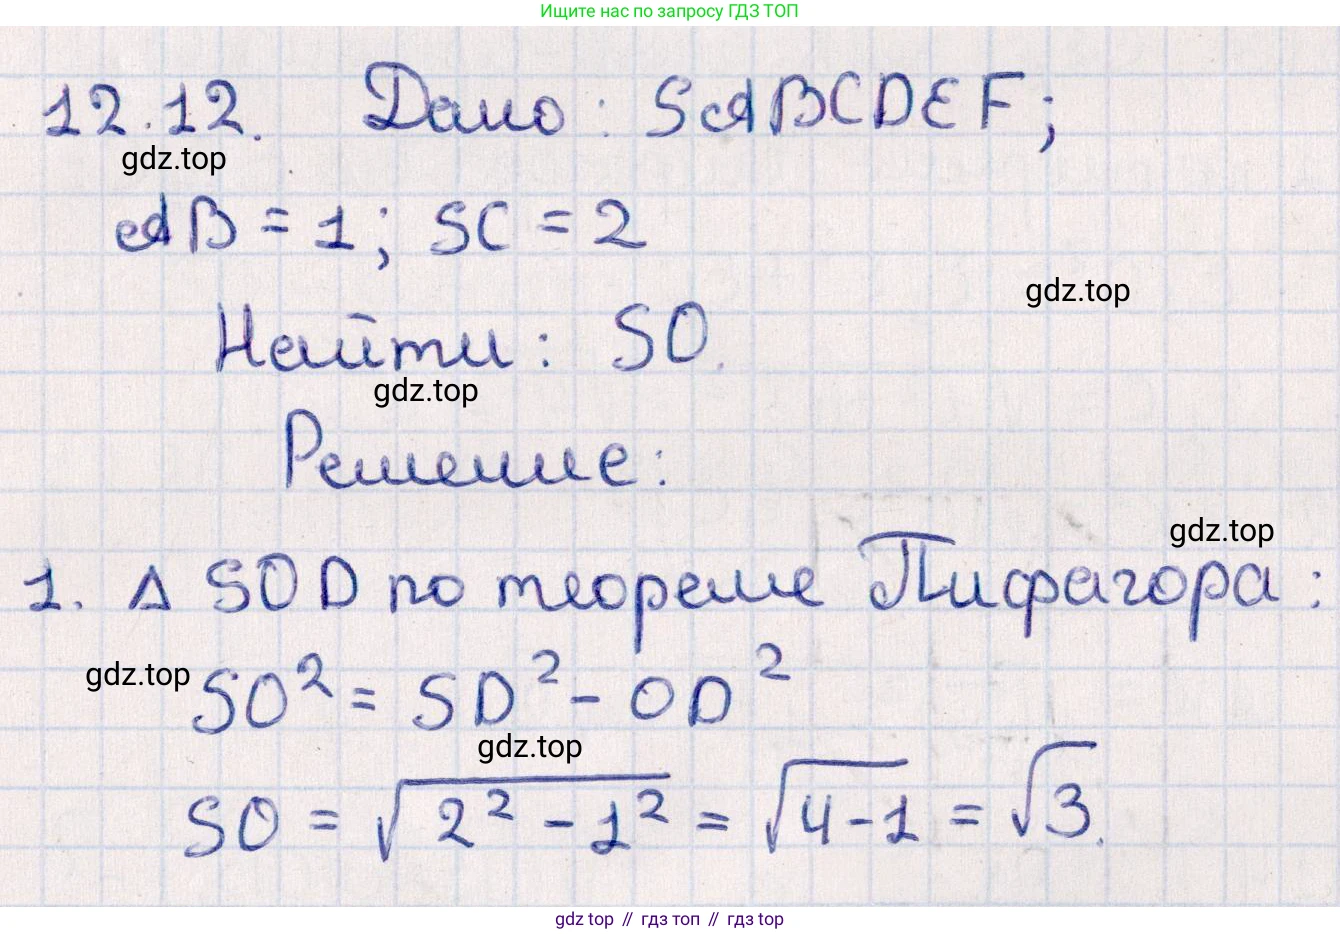 Ищите нас по запросу ГДЗ ТОП
12.12. Дано: SABCDEF;
gdz.top
AB = 1; SC = 2
gdz.top
Найти: SO.
gdz.top
Решение:
gdz.top
1. Δ SOD по теореме Пифагора:
gdz.top
SO² = SD² - OD²
gdz.top
SO = √(2² - 1²) = √(4-1) = √3.
gdz top // гдз топ // гдз top